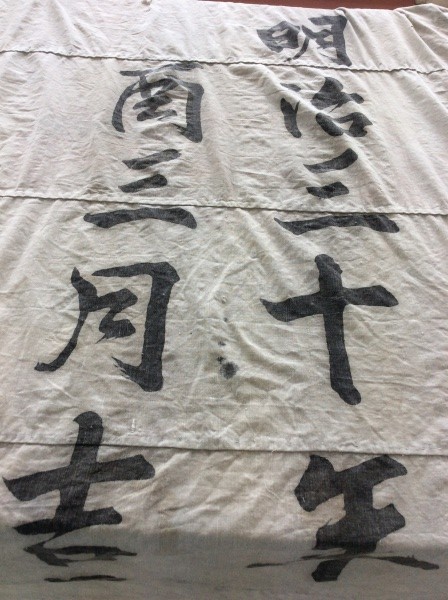 明治三十年
酉三月吉